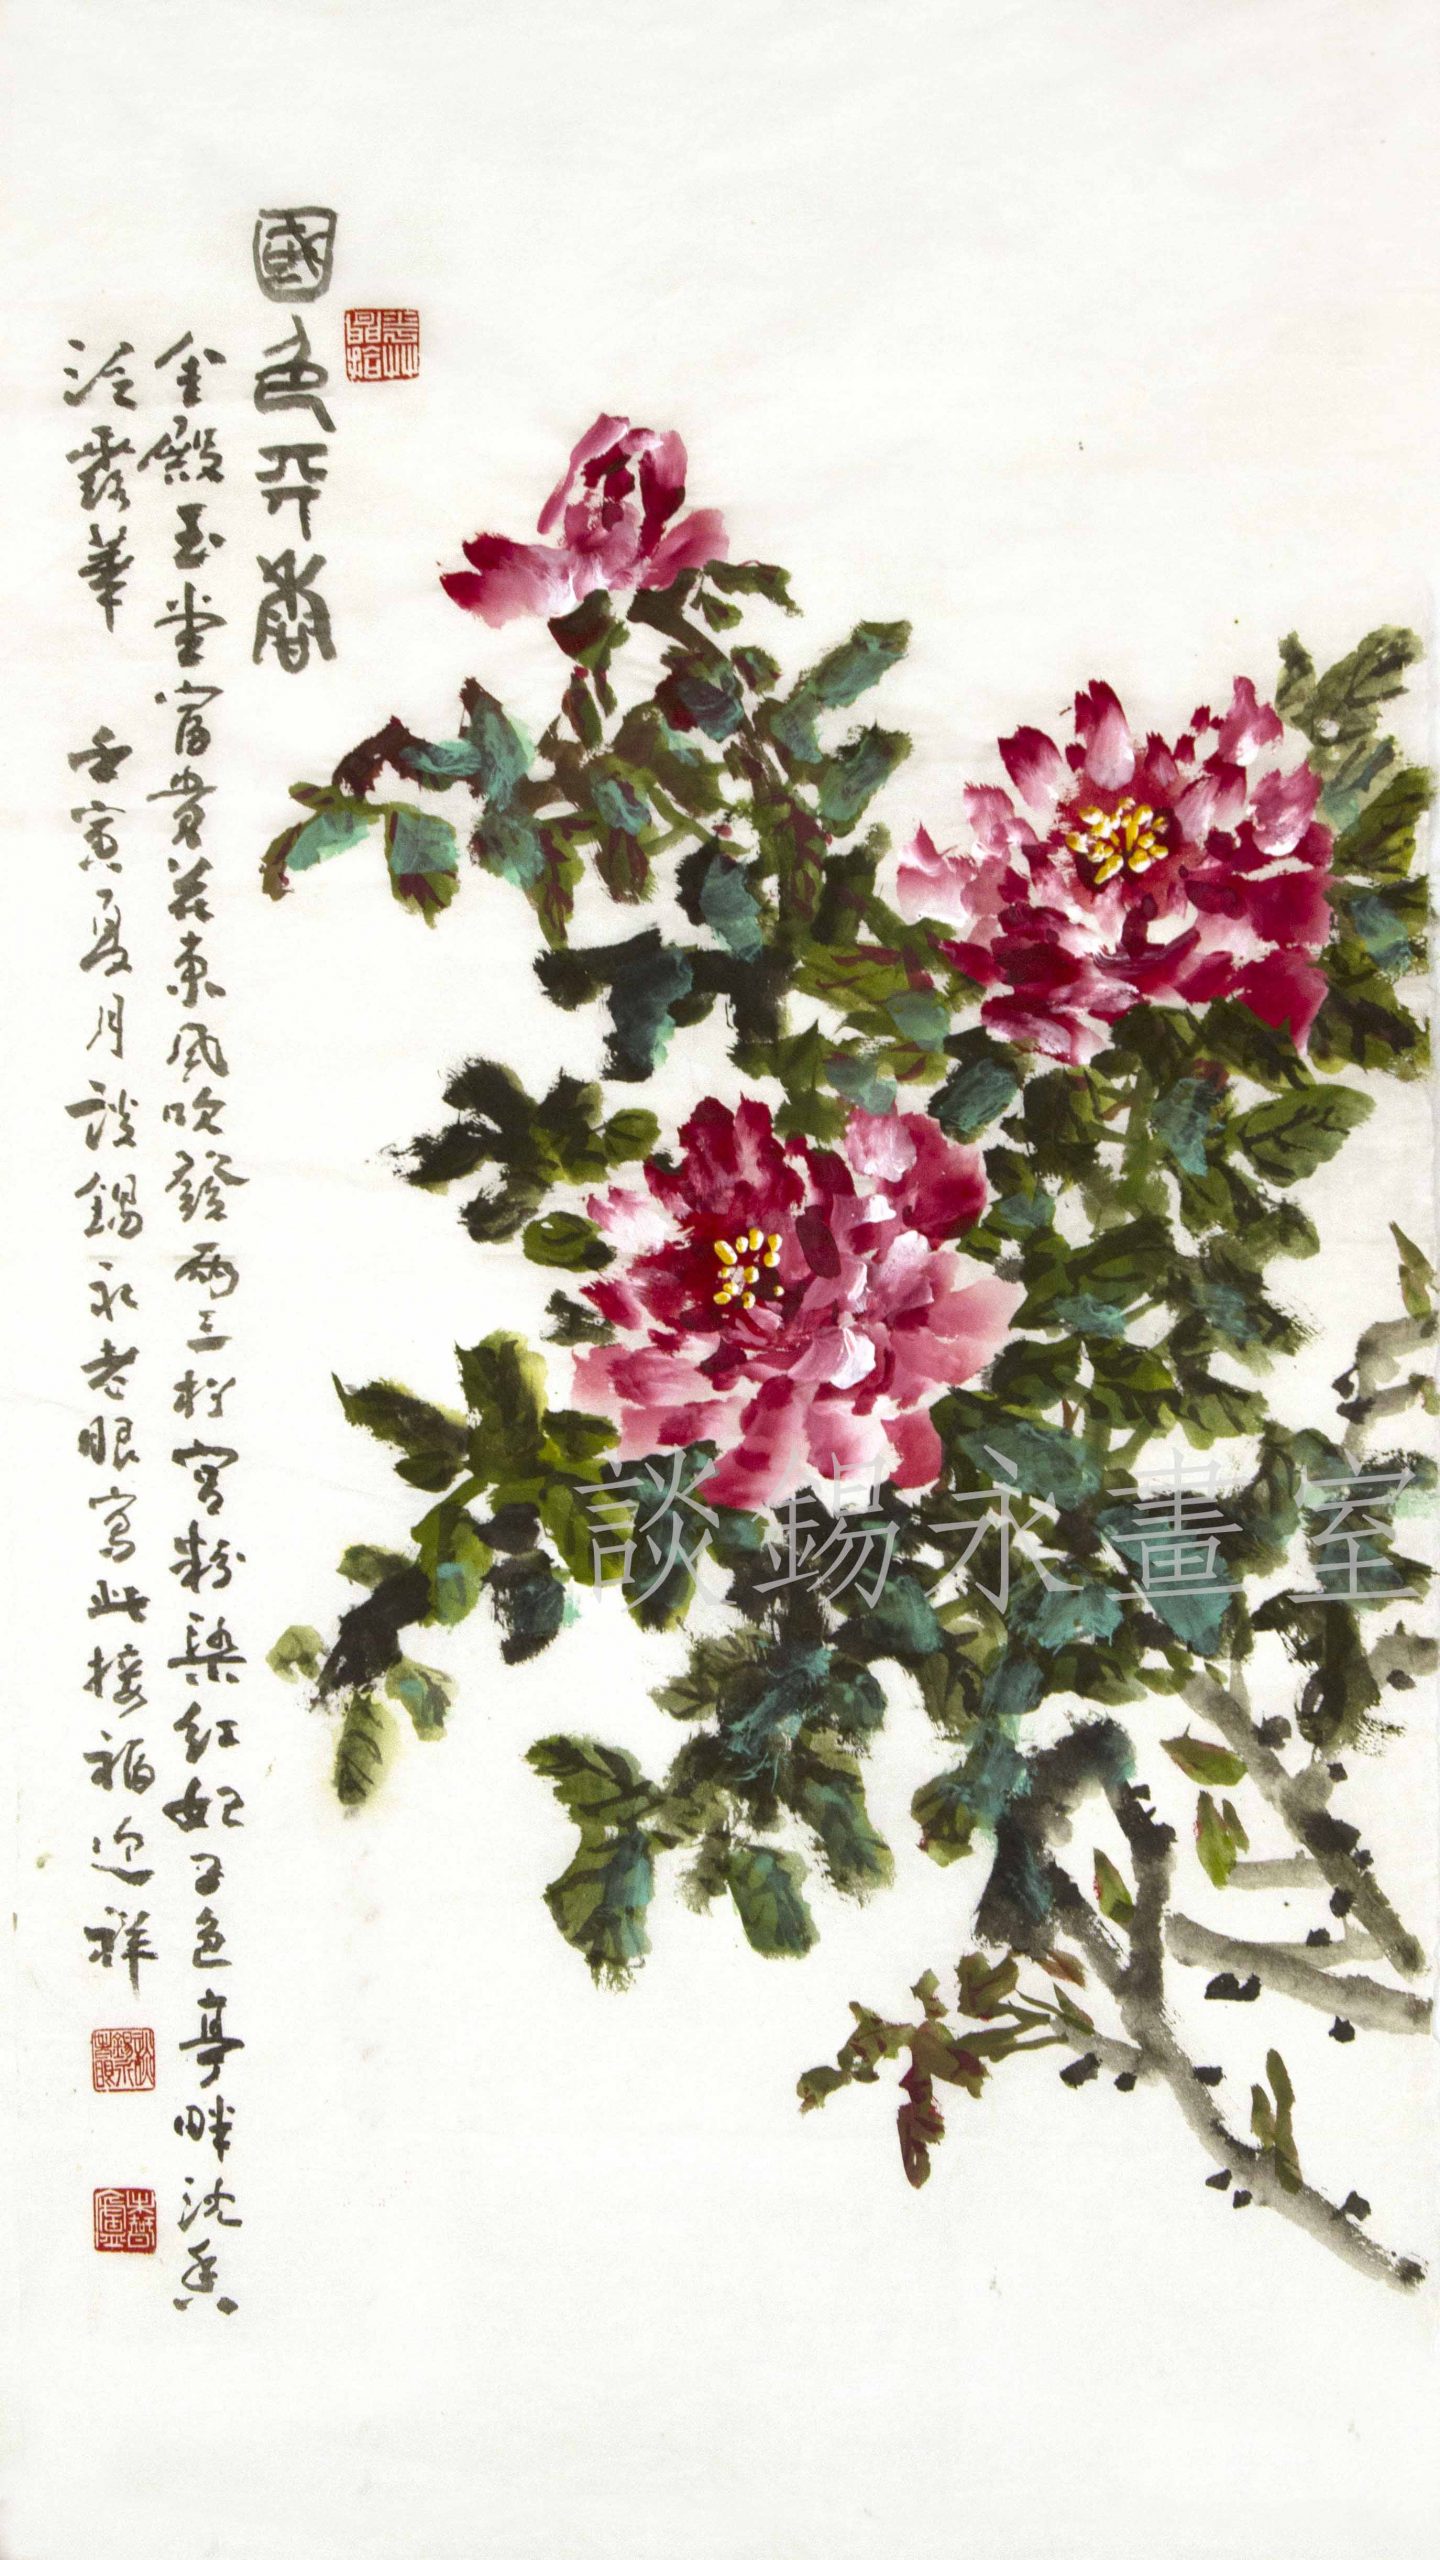 國色天香
金殿玉堂富貴花東風吹發兩三枝宮粉染紅妃子色亭畔沈香
泠露華 壬寅夏月談錫永老眼寫此接福迎祥
談錫永畫室